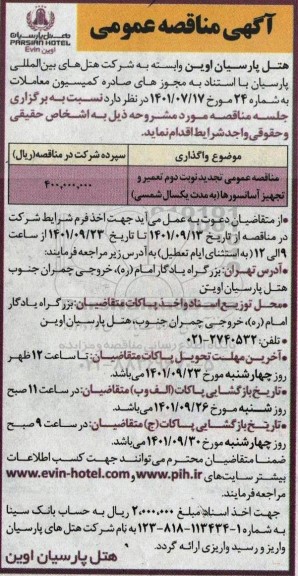 آگهی مناقصه عمومی
هتل پارسیان
PARSIAN HOTEL
اوین Evin
هتل پارسیان اوین وابسته به شرکت هتل‌های بین‌المللی
پارسیان با استناد به مجوز های صادره کمیسیون معاملات
به شماره ۲۴ مورخ ۱۴۰۱/۰۷/۱۷ در نظر دارد نسبت به برگزاری
جلسه مناقصه مورد مشروحه ذیل به اشخاص حقیقی
و حقوقی واجد شرایط اقدام نماید.
موضوع واگذاری
سپرده شرکت در مناقصه (ریال)
مناقصه عمومی تجدید نوبت دوم تعمیر و
تجهیز آسانسورها (به مدت یکسال شمسی)
۴۰۰,۰۰۰,۰۰۰
• از متقاضیان دعوت به عمل می آید جهت اخذ فرم شرایط شرکت
در مناقصه از تاریخ ۱۴۰۱/۰۹/۱۳ تا تاریخ ۱۴۰۱/۰۹/۲۳ از ساعت
۹ الی ۱۲ (به استثنای ایام تعطیل) به آدرس زیر مراجعه فرمایند:
• آدرس تهران: بزرگراه یادگار امام (ره)، خروجی چمران جنوب
هتل پارسیان اوین
• محل توزیع اسناد و اخذ پاکات متقاضیان: بزرگراه یادگار
امام (ره)، خروجی چمران جنوب هتل پارسیان اوین
• تلفن: ۲۷۴۰۵۳۲-۰۲۱
• آخرین مهلت تحویل پاکات متقاضیان: تا ساعت ۱۲ ظهر
روز چهارشنبه مورخ ۱۴۰۱/۰۹/۲۳ می‌باشد.
• تاریخ بازگشایی پاکات (الف و ب) متقاضیان: در ساعت ۱۱ صبح
روز شنبه مورخ ۱۴۰۱/۰۹/۲۶ می‌باشد.
• تاریخ بازگشایی پاکات (ج) متقاضیان: در ساعت ۹ صبح
روز چهارشنبه مورخ ۱۴۰۱/۰۹/۳۰ می‌باشد.
ضمنا متقاضیان محترم می‌توانند جهت کسب اطلاعات
بیشتر سایت‌های www.pih.ir و www.evin-hotel.com
مراجعه فرمایند.
جهت اخذ اسناد مبلغ ۲,۰۰۰,۰۰۰ ریال به حساب بانک سینا
به شماره ۱-۱۱۳۴۳۴-۸۱۸-۱۲۳ به نام شرکت هتل های پارسیان
واریز و رسید واریزی ارائه گردد.
هتل پارسیان اوین